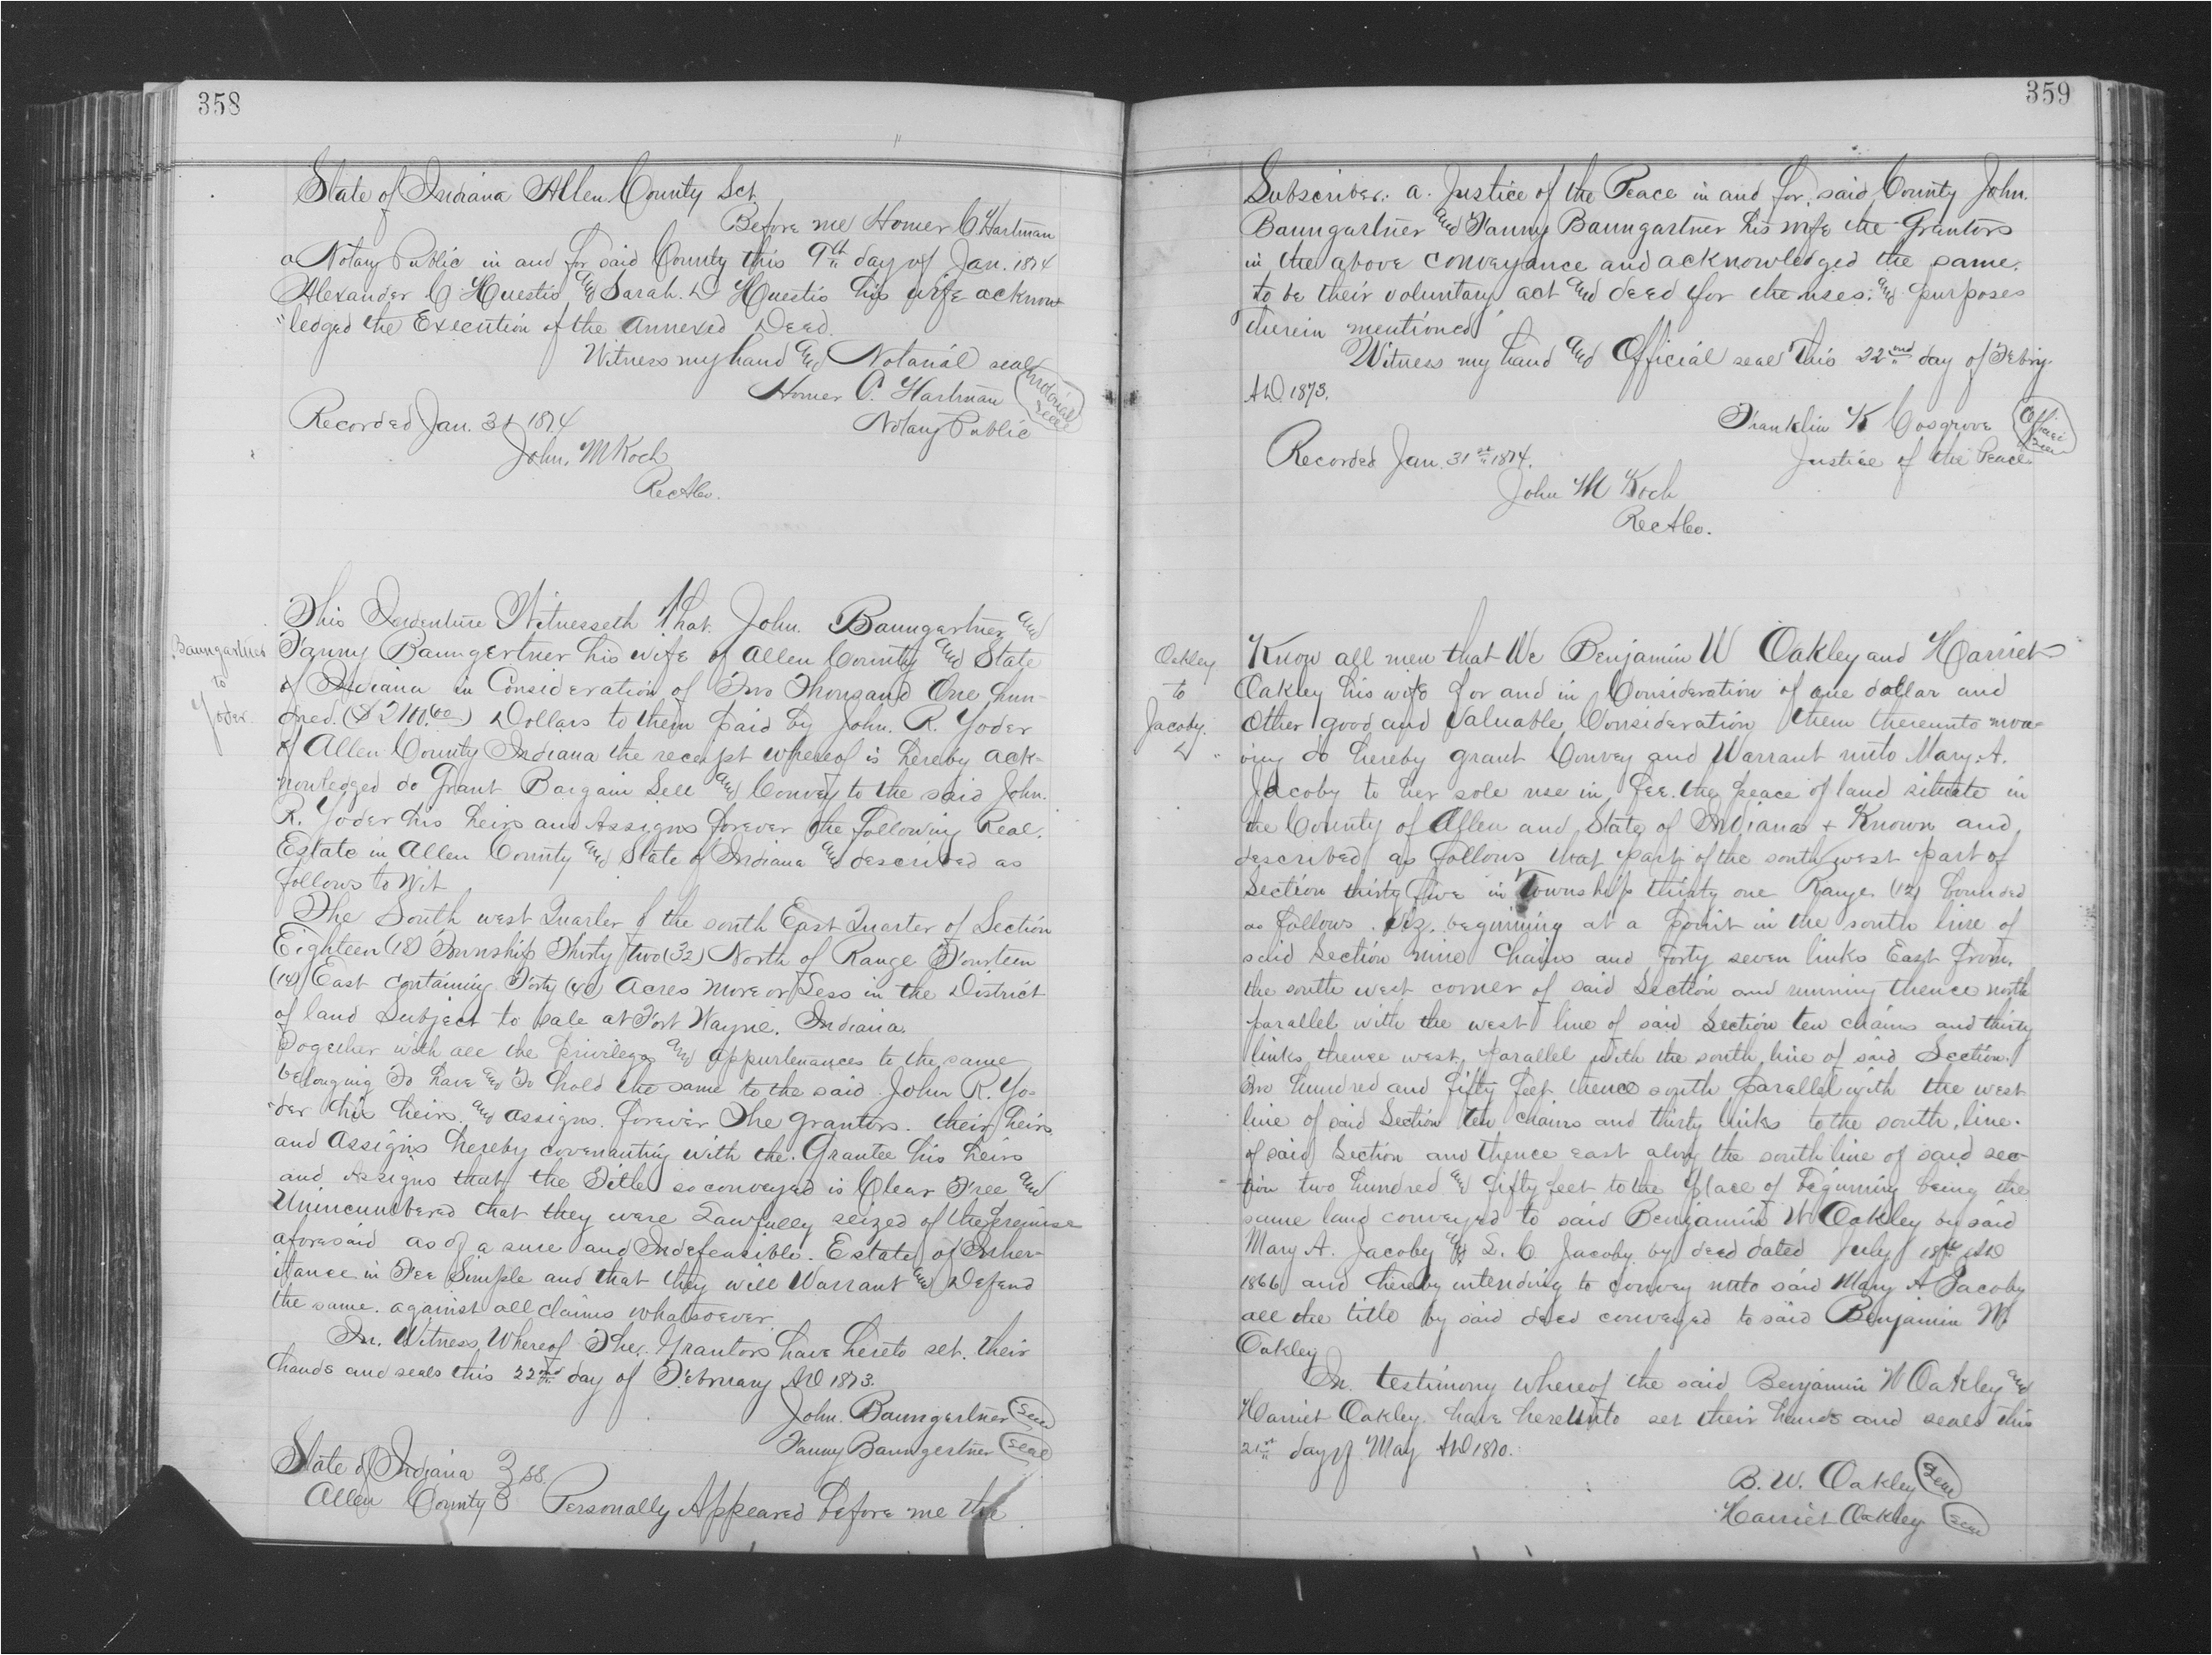 358
State of Indiana Allen County Sct.
Before me Homer C Hartman
a Notary Public in and for said County this 9th day of Jan. 1874
Alexander C Huestis and Sarah. D Huestis his wife acknow
"ledged the Execution of the annexed Deed.
Witness my hand and Notarial seal
Homer C. Hartman
Notarial seal
Notary Public
Recorded Jan. 31 1874
John. M Koch
RecACo.
Baumgartner
to
Yoder.
This Indenture Witnesseth That. John. Baumgertner and
Fanny Baumgertner his wife of Allen County and State
of Indiana in Consideration of Two Thousand One hun-
dred. ($2100.00) Dollars to them paid by John. R. Yoder
of Allen County Indiana the receipt whereof is hereby ack-
nowledged do Grant Bargain Sell and Convey to the said John.
R. Yoder his heirs and Assigns forever the following Real.
Estate in Allen County and State of Indiana and described as
follows to Wit
The South west Quarter of the south East Quarter of Section
Eighteen (18) Township Thirty two (32) North of Range Fourteen
(14) East containing Forty (40) Acres More or Less in the District
of land Subject to sale at Fort Wayne. Indiana.
Together with all the privileges and appurtenances to the same
belonging To have and To hold the same to the said John R. Yo-
"der his heirs. and assigns. forever The grantors. their heirs
and Assigns hereby covenanting with the. Grantee his heirs
and Assigns that the Title so conveyed is Clear Free and
Unincumbered that they were Lawfully seized of the premise
aforesaid as of a sure and Indefeasible. Estate of Inher-
itance in Fee Simple and that they will Warrant and Defend
the same. against all claims whatsoever.
In. Witness Whereof The. Grantors have hereto set. their
hands and seals this 22nd day of February AD 1873.
John. Baumgertner Seal
Fanny Baumgertner Seal
State of Indiana } SS.
Allen County } Personally Appeared before me the
359
Subscriber. a. Justice of the Peace in and for. said County John.
Baumgartner and Fanny Baumgartner his wife the Grantors
in the above conveyance and acknowledged the same.
to be their voluntary act and deed for the uses. and purposes
therein mentioned
Witness my hand and Official seal this 22nd day of Febry.
AD. 1873.
Franklin K Cosgrove
Official Seal
Justice of the Peace
Recorded Jan. 31st 1874.
John M Koch
RecACo.
Oakley
to
Jacoby.
Know all men that We Benjamin W Oakley and Harriet
Oakley his wife for and in Consideration of one dollar and
Other good and Valuable Consideration them thereunto mov-
ing do hereby grant Convey and Warrant unto Mary. A.
Jacoby to her sole use in fee. the peace of land situate in
the County of Allen and State of Indiana + Known and
described as follows that part of the south west part of
Section thirty five in Township thirty one Range (12) bounded
as follows. Viz. beginning at a point in the south line of
said Section nine Chains and forty seven links East from.
the south west corner of said Section and running thence north
parallel with the west line of said Section ten chains and thirty
links thence west parallel with the south line of said Section.
Two hundred and fifty feet thence south parallel with the west
line of said Section ten chains and thirty links to the south. line.
of said Section and thence east along the south line of said sec-
"tion two hundred and fifty feet to the place of beginning being the
same land conveyed to said Benjamin W Oakley by said
Mary A. Jacoby and L. C Jacoby by deed dated July 18th AD
1866 and hereby intending to convey unto said Mary A Jacoby
all the title by said deed conveyed to said Benjamin W
Oakley
In. testimony whereof the said Benjamin W Oakley and
Harriet Oakley. have hereunto set their hands and seals this
21st day of May AD 1870.
B. W. Oakley Seal
Harriet Oakley Seal